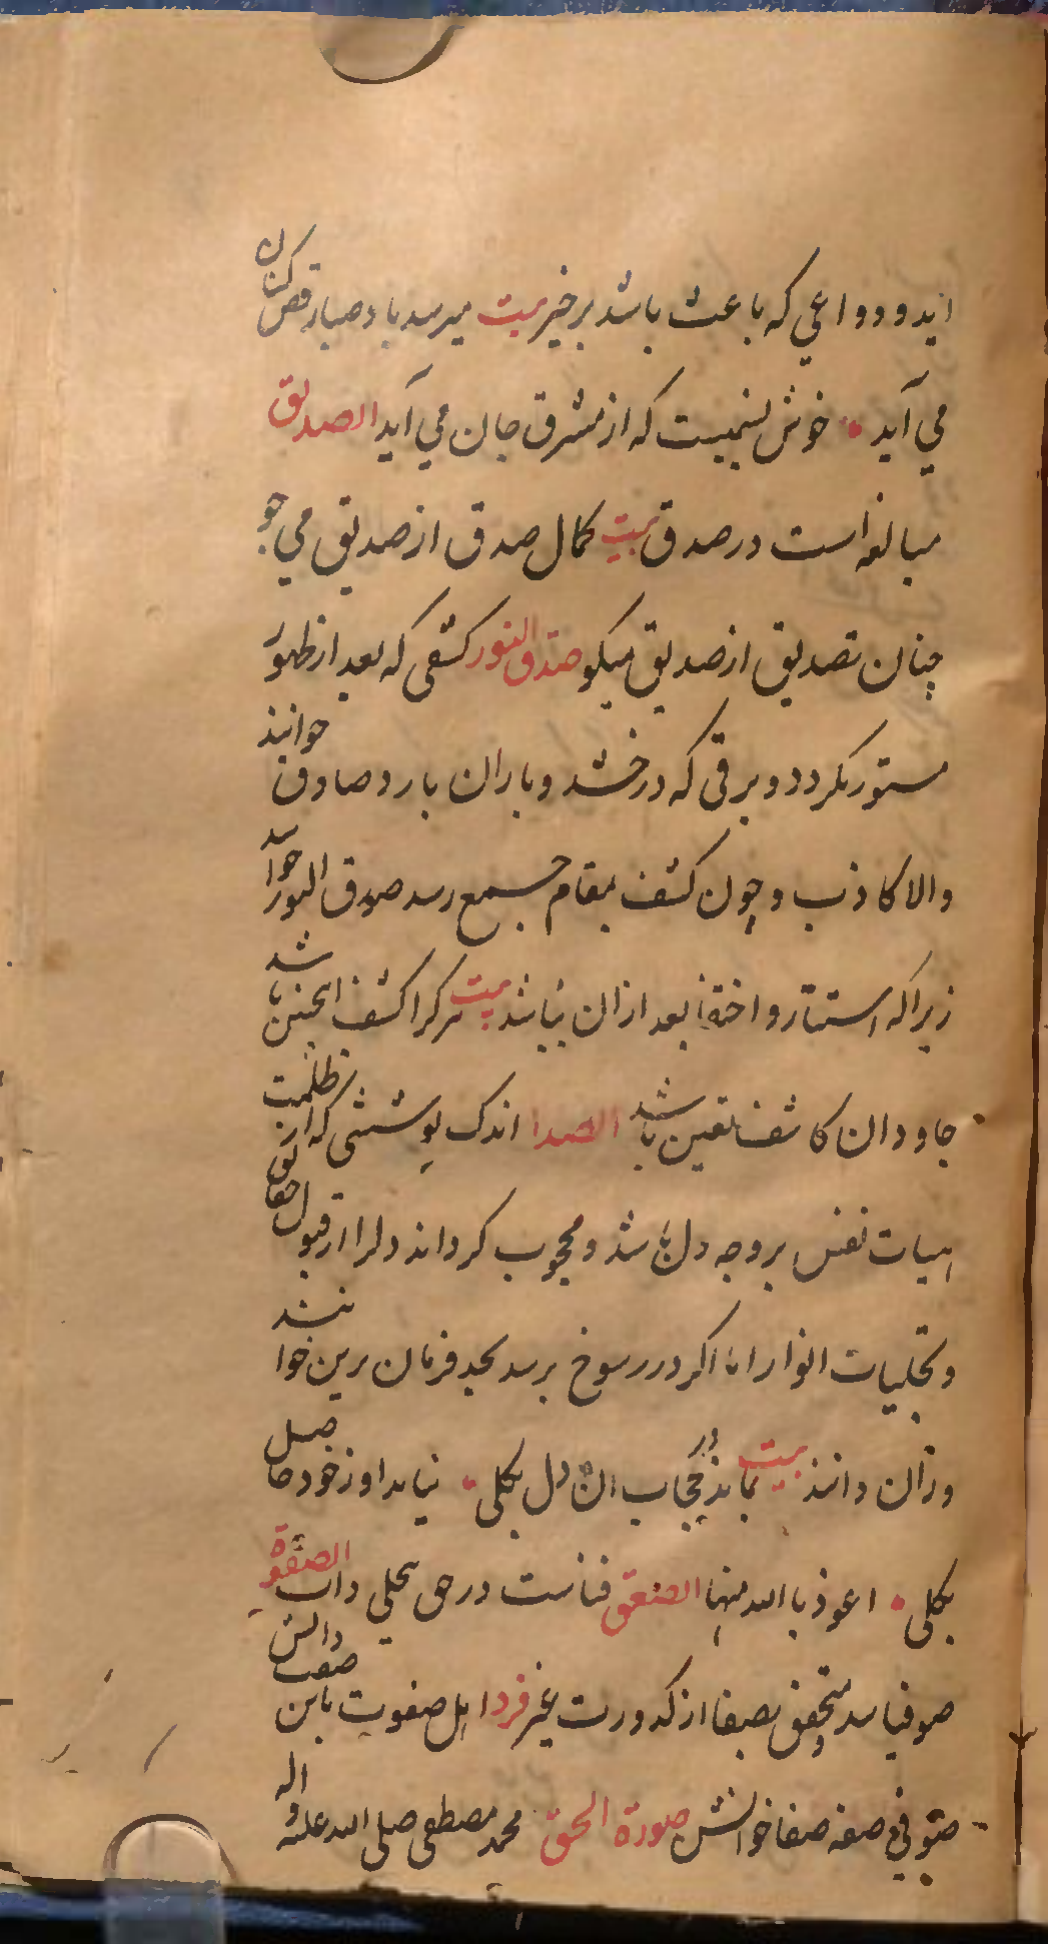 آیند و دواعی که باعث باشد بر خیر بیت میرسد باد صبا رقص کنان
می آید • خوش نسیمیست که از مشرق جان می آید الصدیق
مبالغه است در صدق بیت کمال صدق از صدیق می جو
چنان تصدیق از صدیق میکو صدق النور کشفی که بعد از ظهور
مستور نکردد و برقی که درخشد و باران بارد صادق خوانند
والا کاذب و چون کشف بمقام جمع رسد صدق النور خوانند
زیرا که استتار و اختفا بعد از ان نباشد بیت هر کرا کشف اینچنین باشد
جاودان کاشف یقین باشد الصدا اندک پوششی که از ظلمت
هیات نفس بر وجه دل باشد و محجوب کرداند دلرا از قبول حقایق
و تجلیات انوار اما اگر در رسوخ برسد بحد فرمان رین خوانند
و ران دانند بیت بماند در حجاب ان دل بکلی • نیابد او ز خود حاصل
بکلی • اعوذ بالله منها الصعق فناست در حق بتجلی ذات الصفوة
صوفیا متحقق بصفا از کدورت غیر فرد اهل صفوت باین صفت دانش
صوفی صفه صفا خوانش صورة الحق محمد مصطفی صلی الله علیه و اله